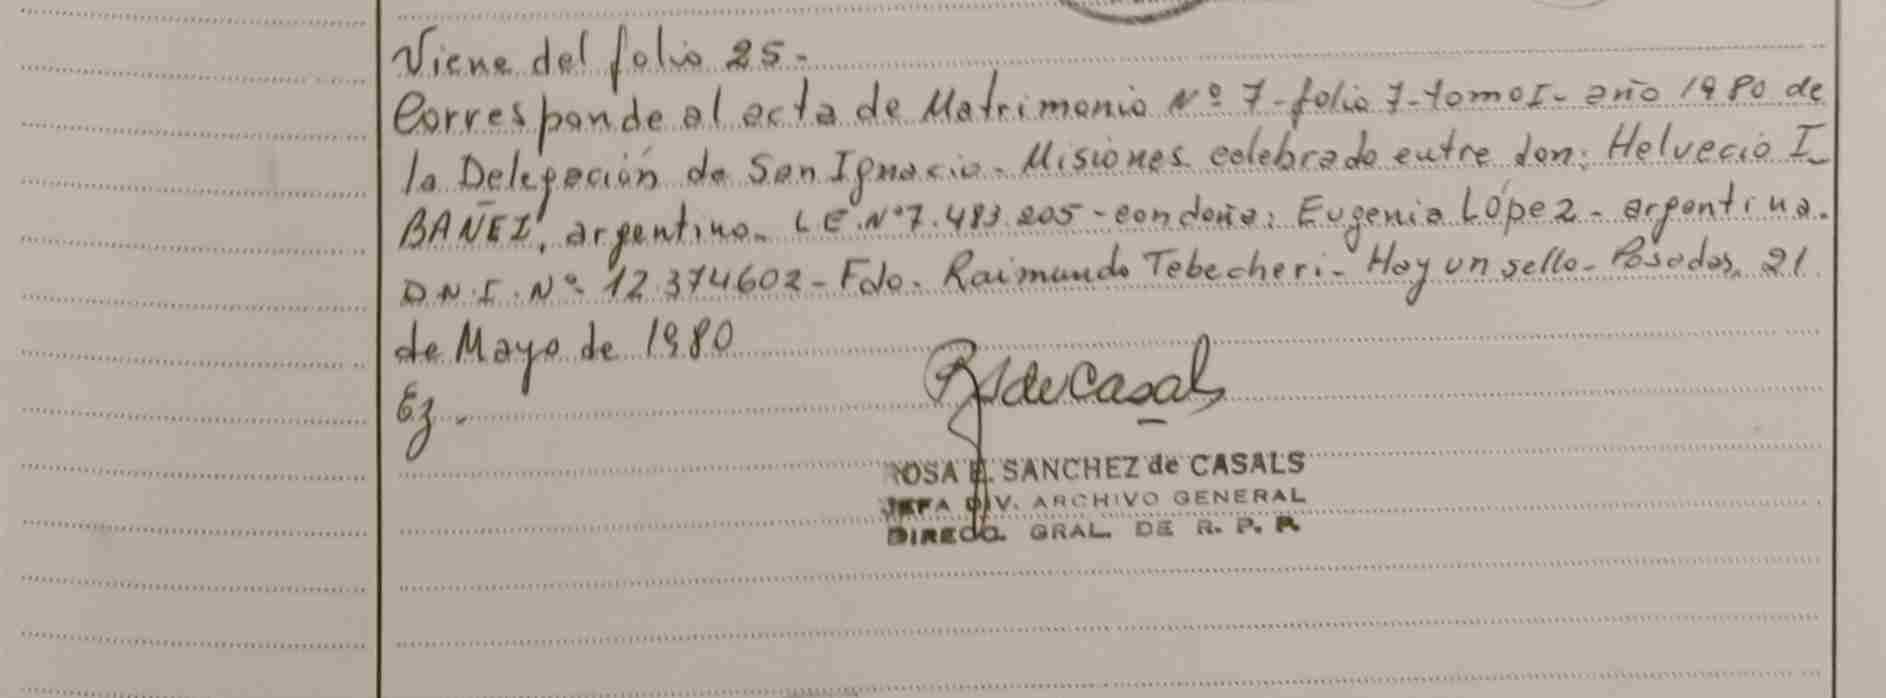 Viene del folio 25-
Corresponde al acta de Matrimonio Nº 7-folio 7-tomo I- año 1980 de
la Delegación de San Ignacio- Misiones celebrado entre don: Helvecio I_
BAÑEZ, argentino- L E.Nº7.483.205-con doña: Eugenia López- argentina-
D.N.I. Nº- 12.374602- Fdo. Raimundo Tebecheri- Hay un sello- Posadas, 21
de Mayo de 1980
Ez-
RS de Casals
ROSA E. SANCHEZ de CASALS
JEFA DIV. ARCHIVO GENERAL
DIRECC. GRAL. DE R. P. P.